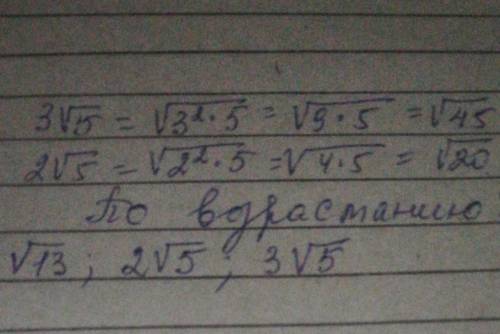 3√5 = √3²·5 = √9·5 = √45
2√5 = √2²·5 = √4·5 = √20
По вдрастанию
√13; 2√5; 3√5